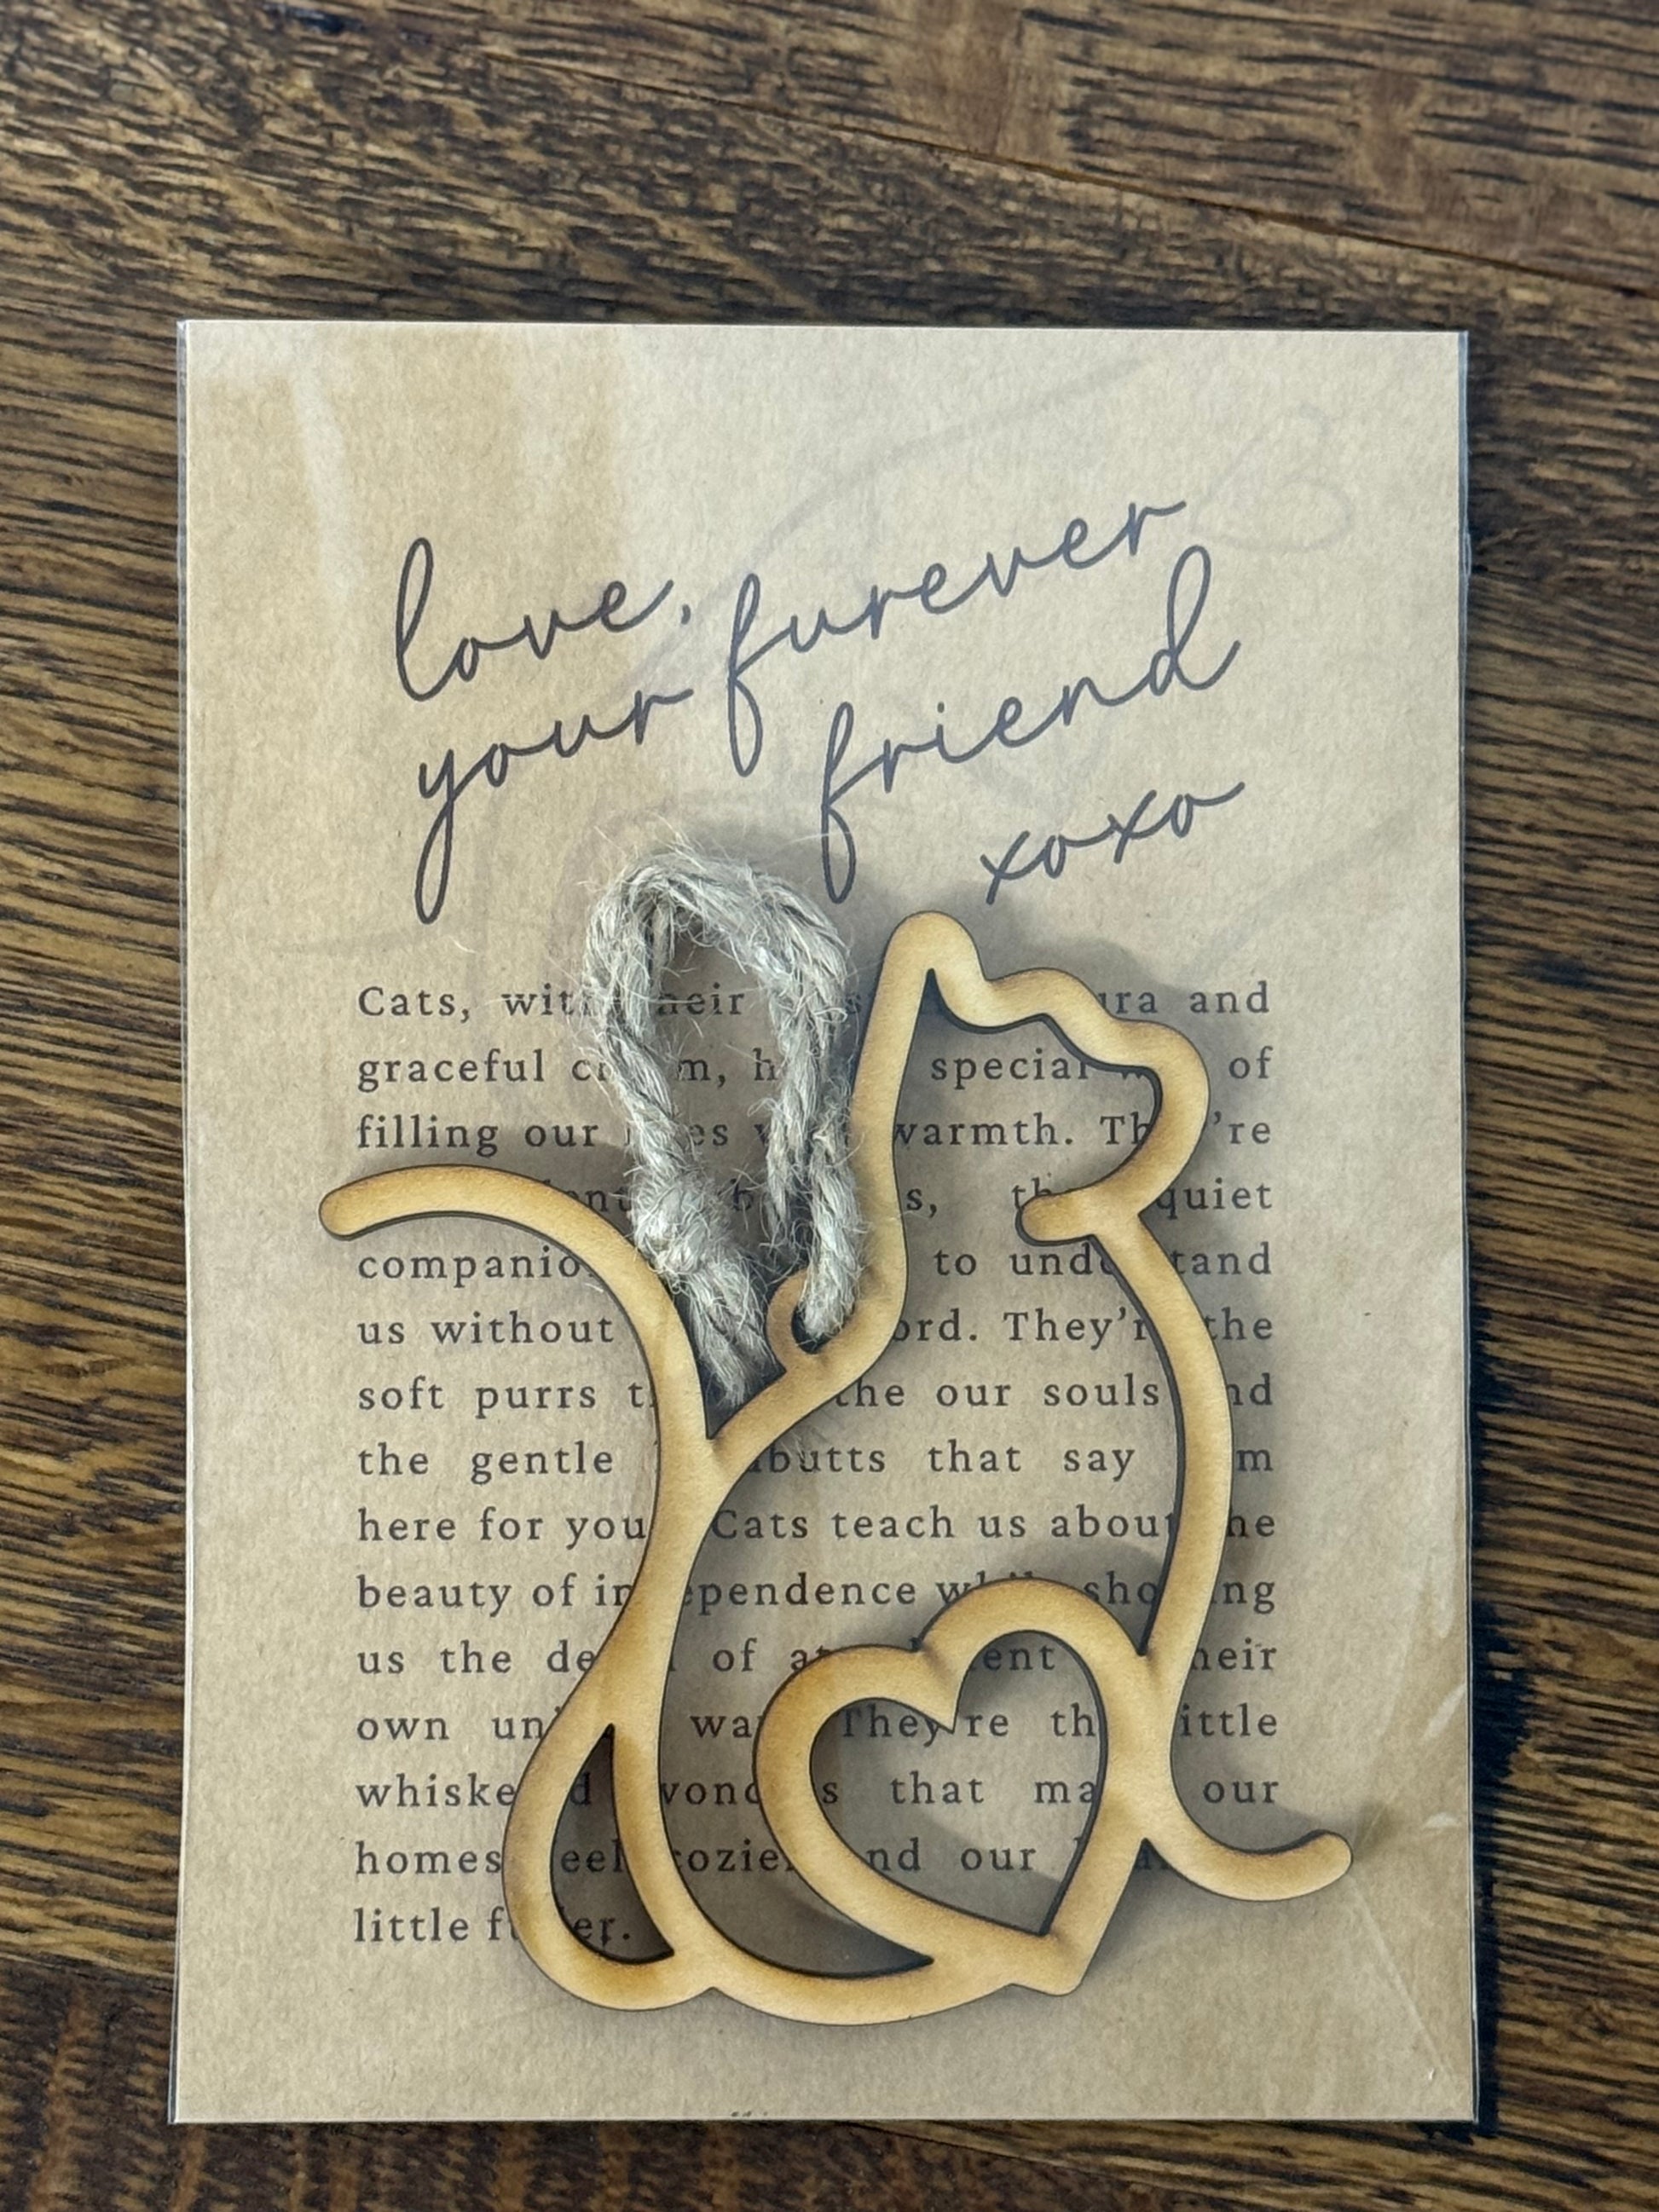 love,
your furever
friend
xoxo
Cats, with their ura and
graceful charm, special of
filling our lives warmth. They're
quiet
companions to understand
us without word. They're the
soft purrs the our souls and
the gentle headbutts that say
here for you Cats teach us about the
beauty of independence while showing
us the of their
own unique They're the little
whiskered wonders that make our
homes feel cozier and our
little fuller.